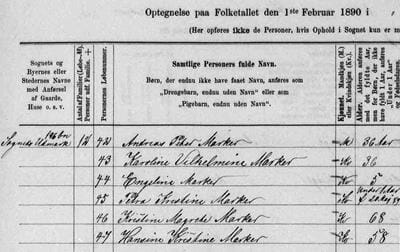 Optegnelse paa Folketallet den 1ste Februar 1890 i
(Her opføres ikke de Personer, hvis Ophold i Sognet kun er m
Sognets og
Byernes eller
Stedernes Navne
med Anførsel
af Gaarde,
Huse o. s. v.
Antal af Familier (Løbe-№).
Personer udf. Familie. +
Personernes Løbenumer.
Samtlige Personers fulde Navn.
Børn, der endnu ikke have faaet Navn, anføres som
„Drengebarn, endnu uden Navn“ eller som
„Pigebarn, endnu uden Navn“.
Kjønnet. Mandkjøn (M.)
eller Kvindekjøn (Kv.).
Alder. Alderen anføres
med det fyldte Aar,
men for Børn, der
ikke have fyldt 1 Aar, anføres
„Under 1 Aar“
og Fødselsdagen.
Sognets Udmark 12 42 Andreas Peter Marker M 36 Aar
43 Karoline Vilhelmine Marker Kv 36
44 Engeline Marker Kv 5
45 Petra Kirstine Marker Kv under 1 Aar
46 Kirstine Magrete Marker Kv 68
47 Hansine Kirstine Marker Kv 58